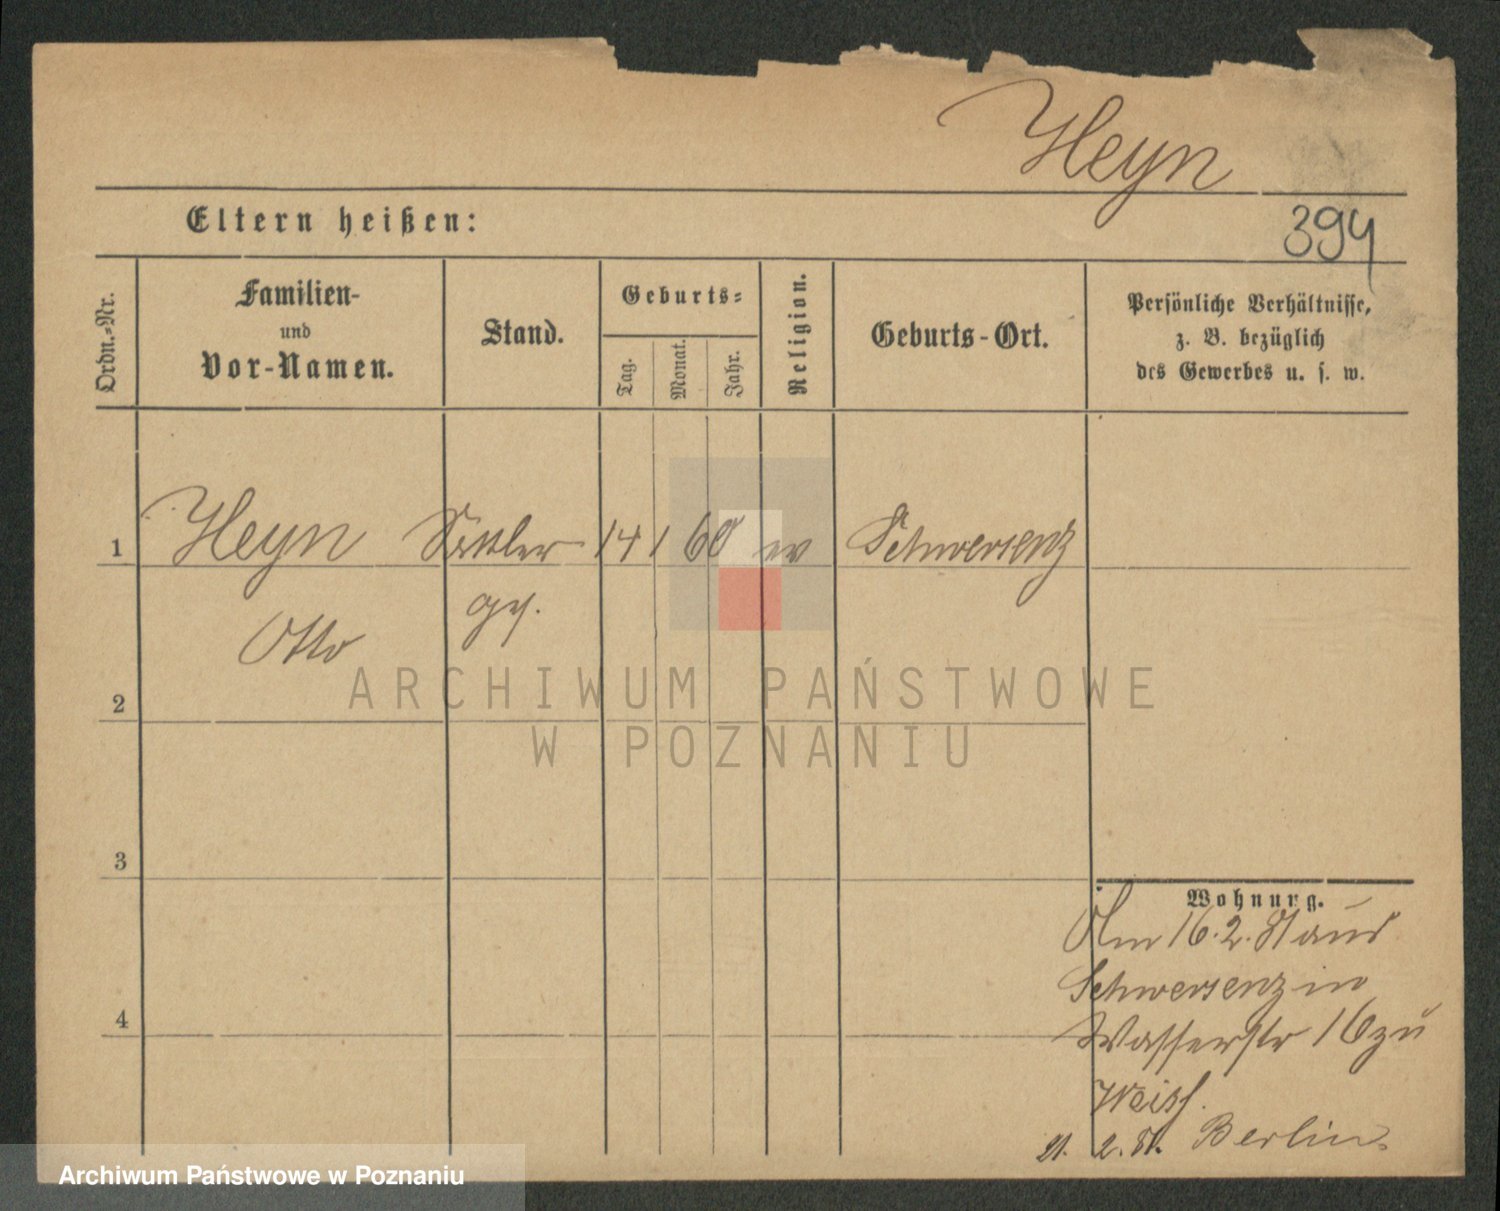 Heyn
Eltern heißen:
394
Ordn.-Nr.
Familien-
und
Vor-Namen.
Stand.
Geburts-
Tag.
Monat.
Jahr.
Religion.
Geburts-Ort.
Persönliche Verhältnisse,
z. B. bezüglich
des Gewerbes u. s. w.
1 Heyn Sattler 14 1 60 ev Schwersenz
Otto ges.
2
3
4
Wohnung.
Am 16.2.81 aus
Schwersenz in
Wasserstr 16 zu
Weiss.
21.2.81. Berlin
ARCHIWUM PAŃSTWOWE
W POZNANIU
Archiwum Państwowe w Poznaniu